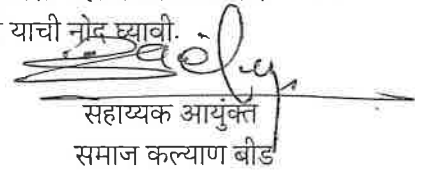 याची नोंद घ्यावी.
सहाय्यक आयुक्त
समाज कल्याण बीड